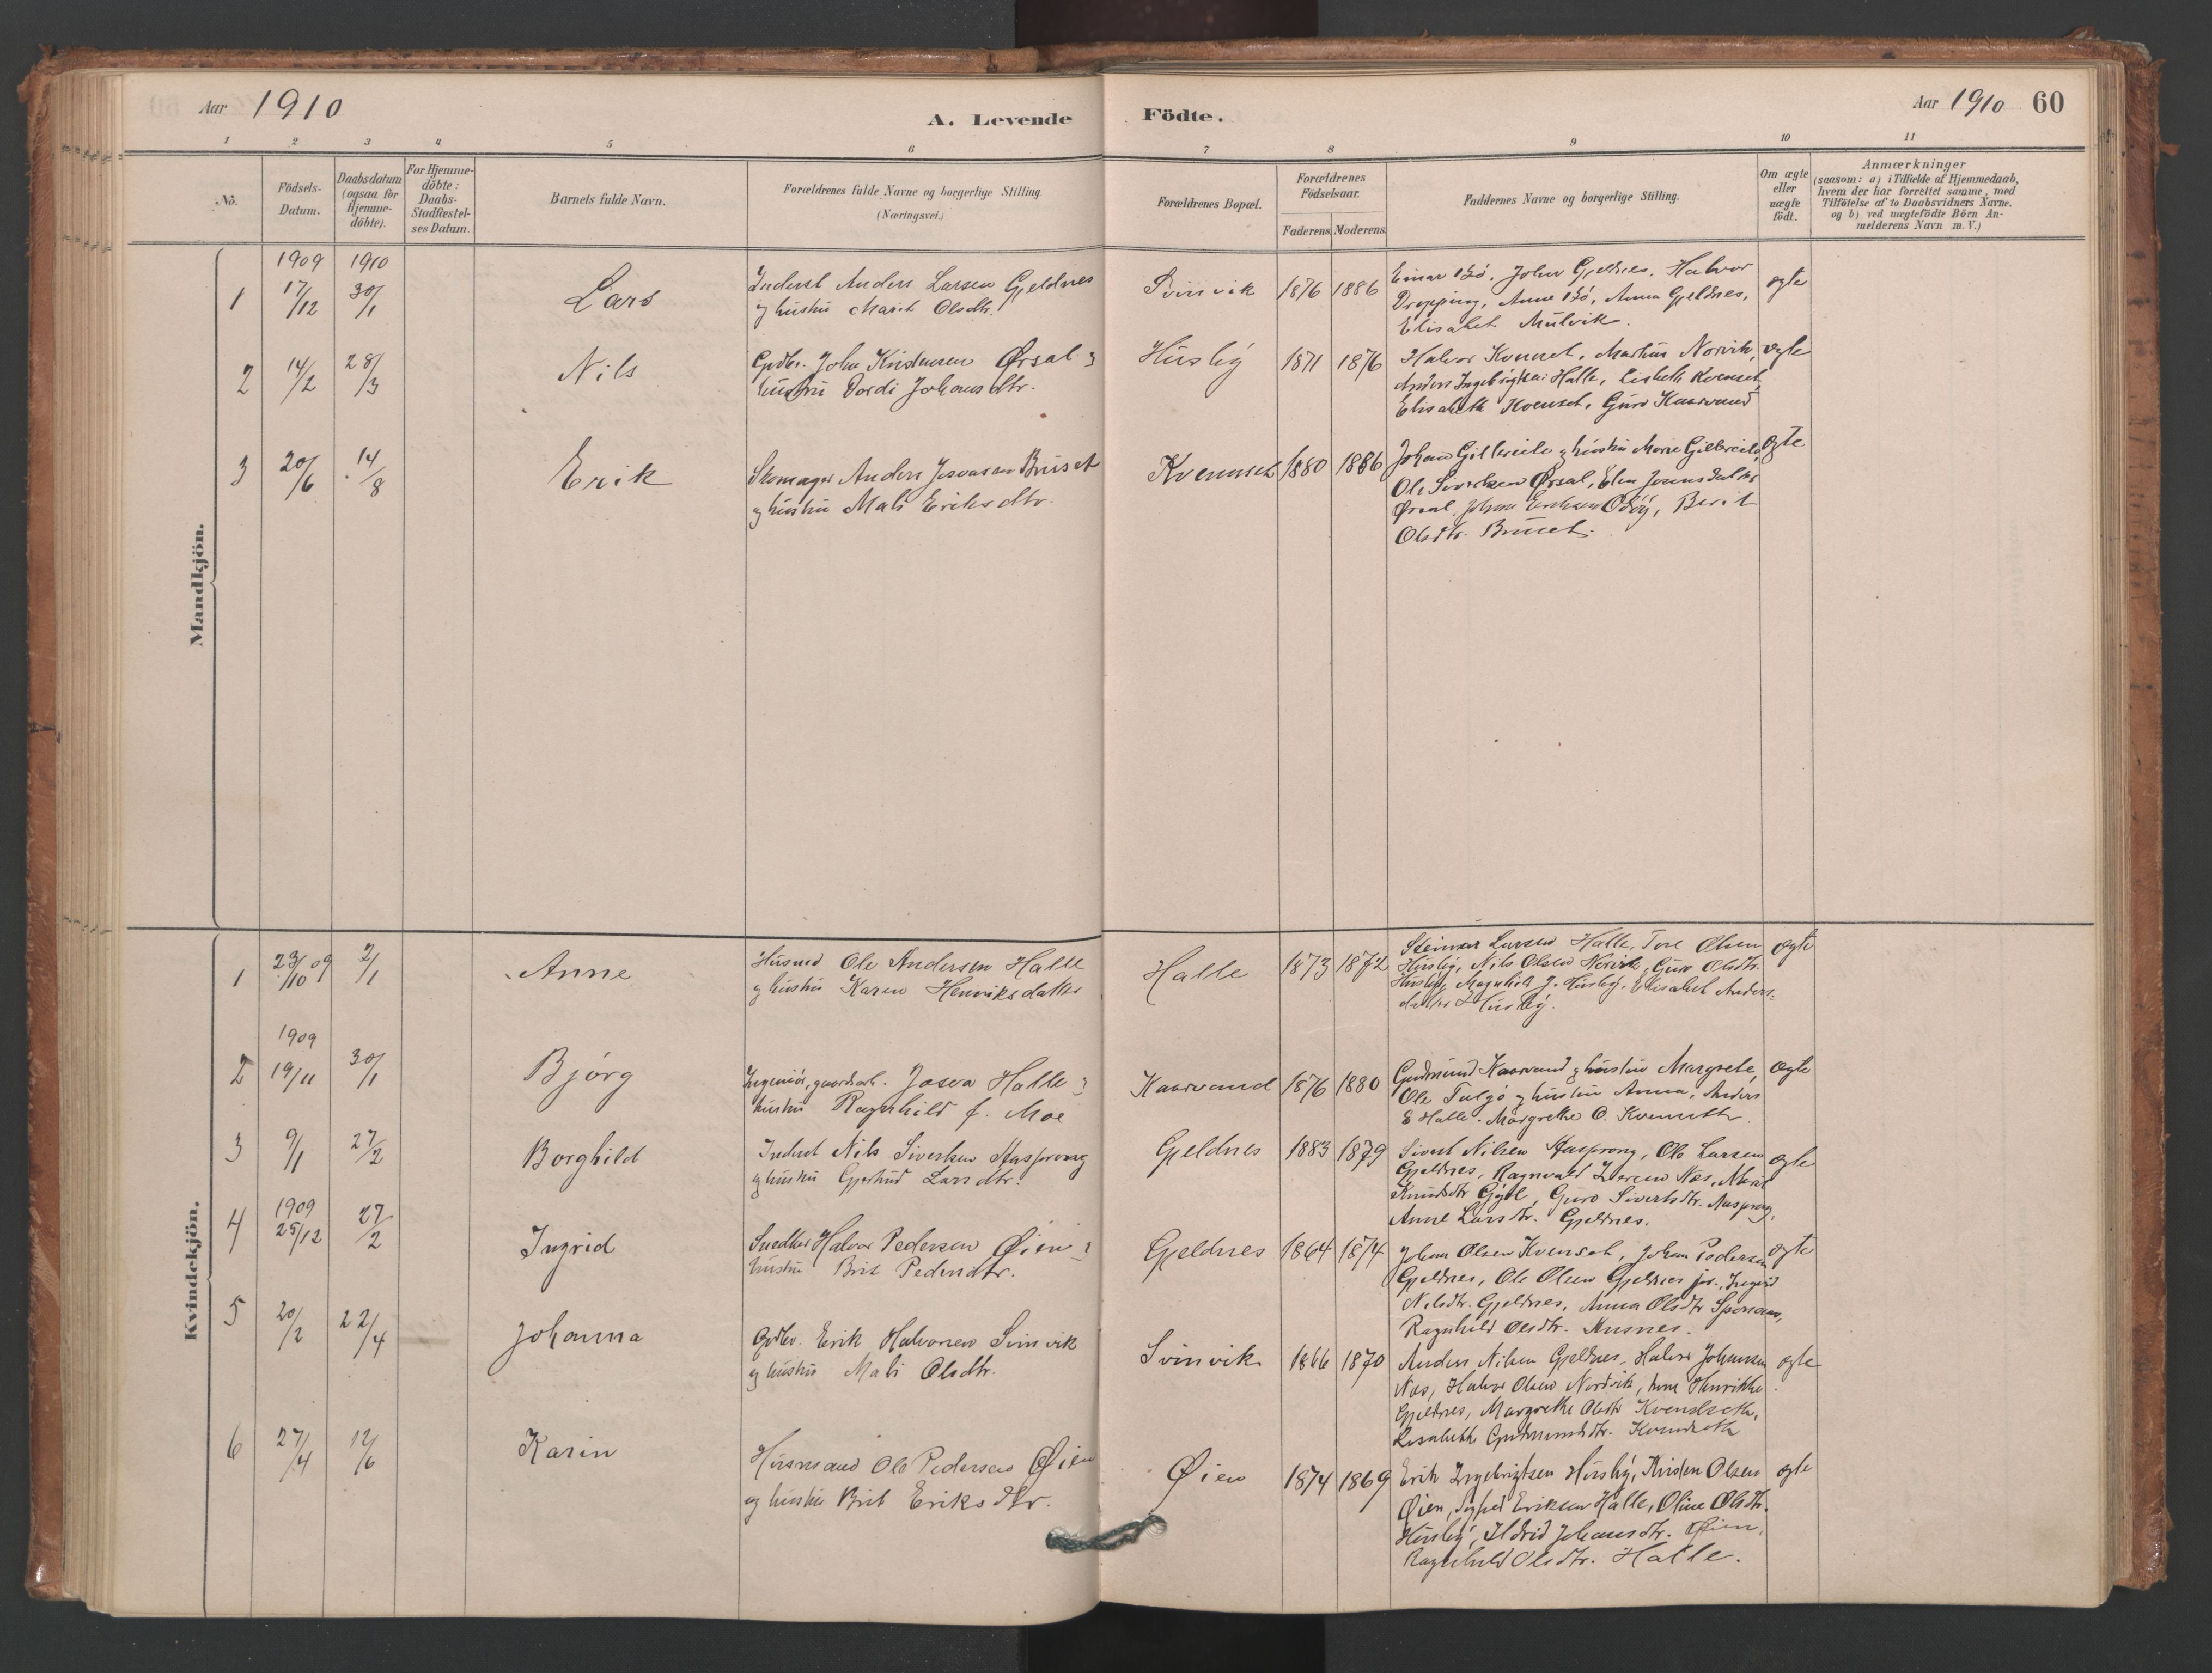 Aar 1910
A. Levende Födte.
Aar 1910 60
1 2 3 4 5 6 7 8 9 10 11
No.
Födsels-
Datum.
Daabsdatum
(ogsaa for
Hjemme-
döbte).
For Hjemme-
döbte:
Daabs-
Stadfæstel-
ses Datum.
Barnets fulde Navn.
Forældrenes fulde Navne og borgerlige Stilling.
(Næringsvei.)
Forældrenes Bopæl.
Forældrenes
Födselsaar.
Faderens. Moderens.
Faddernes Navne og borgerlige Stilling.
Om ægte
eller
uægte
födt.
Anmærkninger
(saasom: a) i Tilfælde af Hjemmedaab,
hvem der har forrettet samme, med
Tilföielse af to Daabsvidners Navne.
og b) ved uægtefödte Börn An-
melderens Navn m. V.)
Mandkjön.
1
1909
17/12
1910
30/1
Lars
Inderst Anders Larsen Gjeldnes
og hustru Marit Olsdtr.
Svinvik
1876
1886
Einar Bö, John Gjeldnes, Halvor
Dropping, Anne Bö, Anna Gjeldnes,
Elisabet Mulvik.
ægte
2
14/2
28/3
Nils
Gvdbr. John Kristensen Ørsal &
hustru Dordi Johansdtr.
Husby
1871
1876
Halvor Kvenset, Martin Norvik,
Anders Ingebrigtsen Halle, Lisbeth Kvenset,
Elisabeth Kvenset, Guro Kaarvand
ægte
3
20/6
14/8
Erik
Skomager Anders Josvasen Bruset
og hustru Mali Eriksdtr.
Kvennset
1880
1886
Johan Gilbreite og hustru Marie Gilbreite,
Ole Sivertsen Ørsal, Elen Jonsdatter
Ørsal, Johan Eriksen Odöy, Berit
Olsdtr. Bruset.
ægte
Kvindekjön.
1
23/10 09
2/1
Anne
Husmd Ole Andersen Halle
og hustru Karen Henriksdatter
Halle
1873
1872
Steinar Larsen Halle, Tore Olsen
Husby, Nils Olsen Norvik, Guro Olsdtr.
Husby, Magnhild J. Husby, Elisabet Anders-
datter Husby.
ægte
2
1909
19/11
30/1
Bjørg
Ingeniör, gaardbr. Josva Halle &
hustru Ragnhild f. Moe
Kaarvand
1876
1880
Gudmund Kaarvand og hustru Margrete,
Ole Talgö og hustru Anna, Anders
E Halle, Margrethe O. Kvenneth
ægte
3
9/1
27/2
Borghild
Inderst Nils Sivertsen Aasprong
og hustru Gjertrud Larsdtr.
Gjeldnes
1883
1879
Sivert Nilsen Aasprong, Ole Larsen
Gjeldnes, Ragnvald Iversen Næs, Marit
Knudsdtr Gÿtl, Guro Sivertsdtr. Aasprong,
Anne Larsdtr. Gjeldnes.
ægte
4
1909
25/12
27/2
Ingrid
Snedker Halvor Pedersen Øien &
hustru Brit Pedersdtr.
Gjeldnes
1864
1874
Johan Olsen Kvenset, Johan Pedersen
Gjeldnes, Ole Olsen Gjeldnes jor., Ingrid
Nilsdtr. Gjeldnes, Anna Olsdtr
Ragnhild Olsdtr. Husnes.
ægte
5
20/2
22/4
Johanna
Gvdbr. Erik Halvorsen Svinvik
og hustru Mali Olsdtr.
Svinvik
1866
1870
Anders Nilsen Gjeldnes, Halvor Johansen
Næs, Halvor Olsen Nordvik, Anne Henrikke
Gjeldnes, Margrethe Olsdtr Kvendseth,
Lisabeth Gudmundsdtr. Kvendseth
ægte
6
27/4
12/6
Karin
Husmand Ole Pedersen Øien
og hustru Brit Eriksdtr.
Øien
1874
1869
Erik Ingebrigtsen Husby, Kristen Olsen
Øien, Sigfred Eriksen Halle, Oline Olsdtr.
Husby, Ildrid Johansdtr. Øien,
Ragnhild Olsdtr. Halle.
ægte